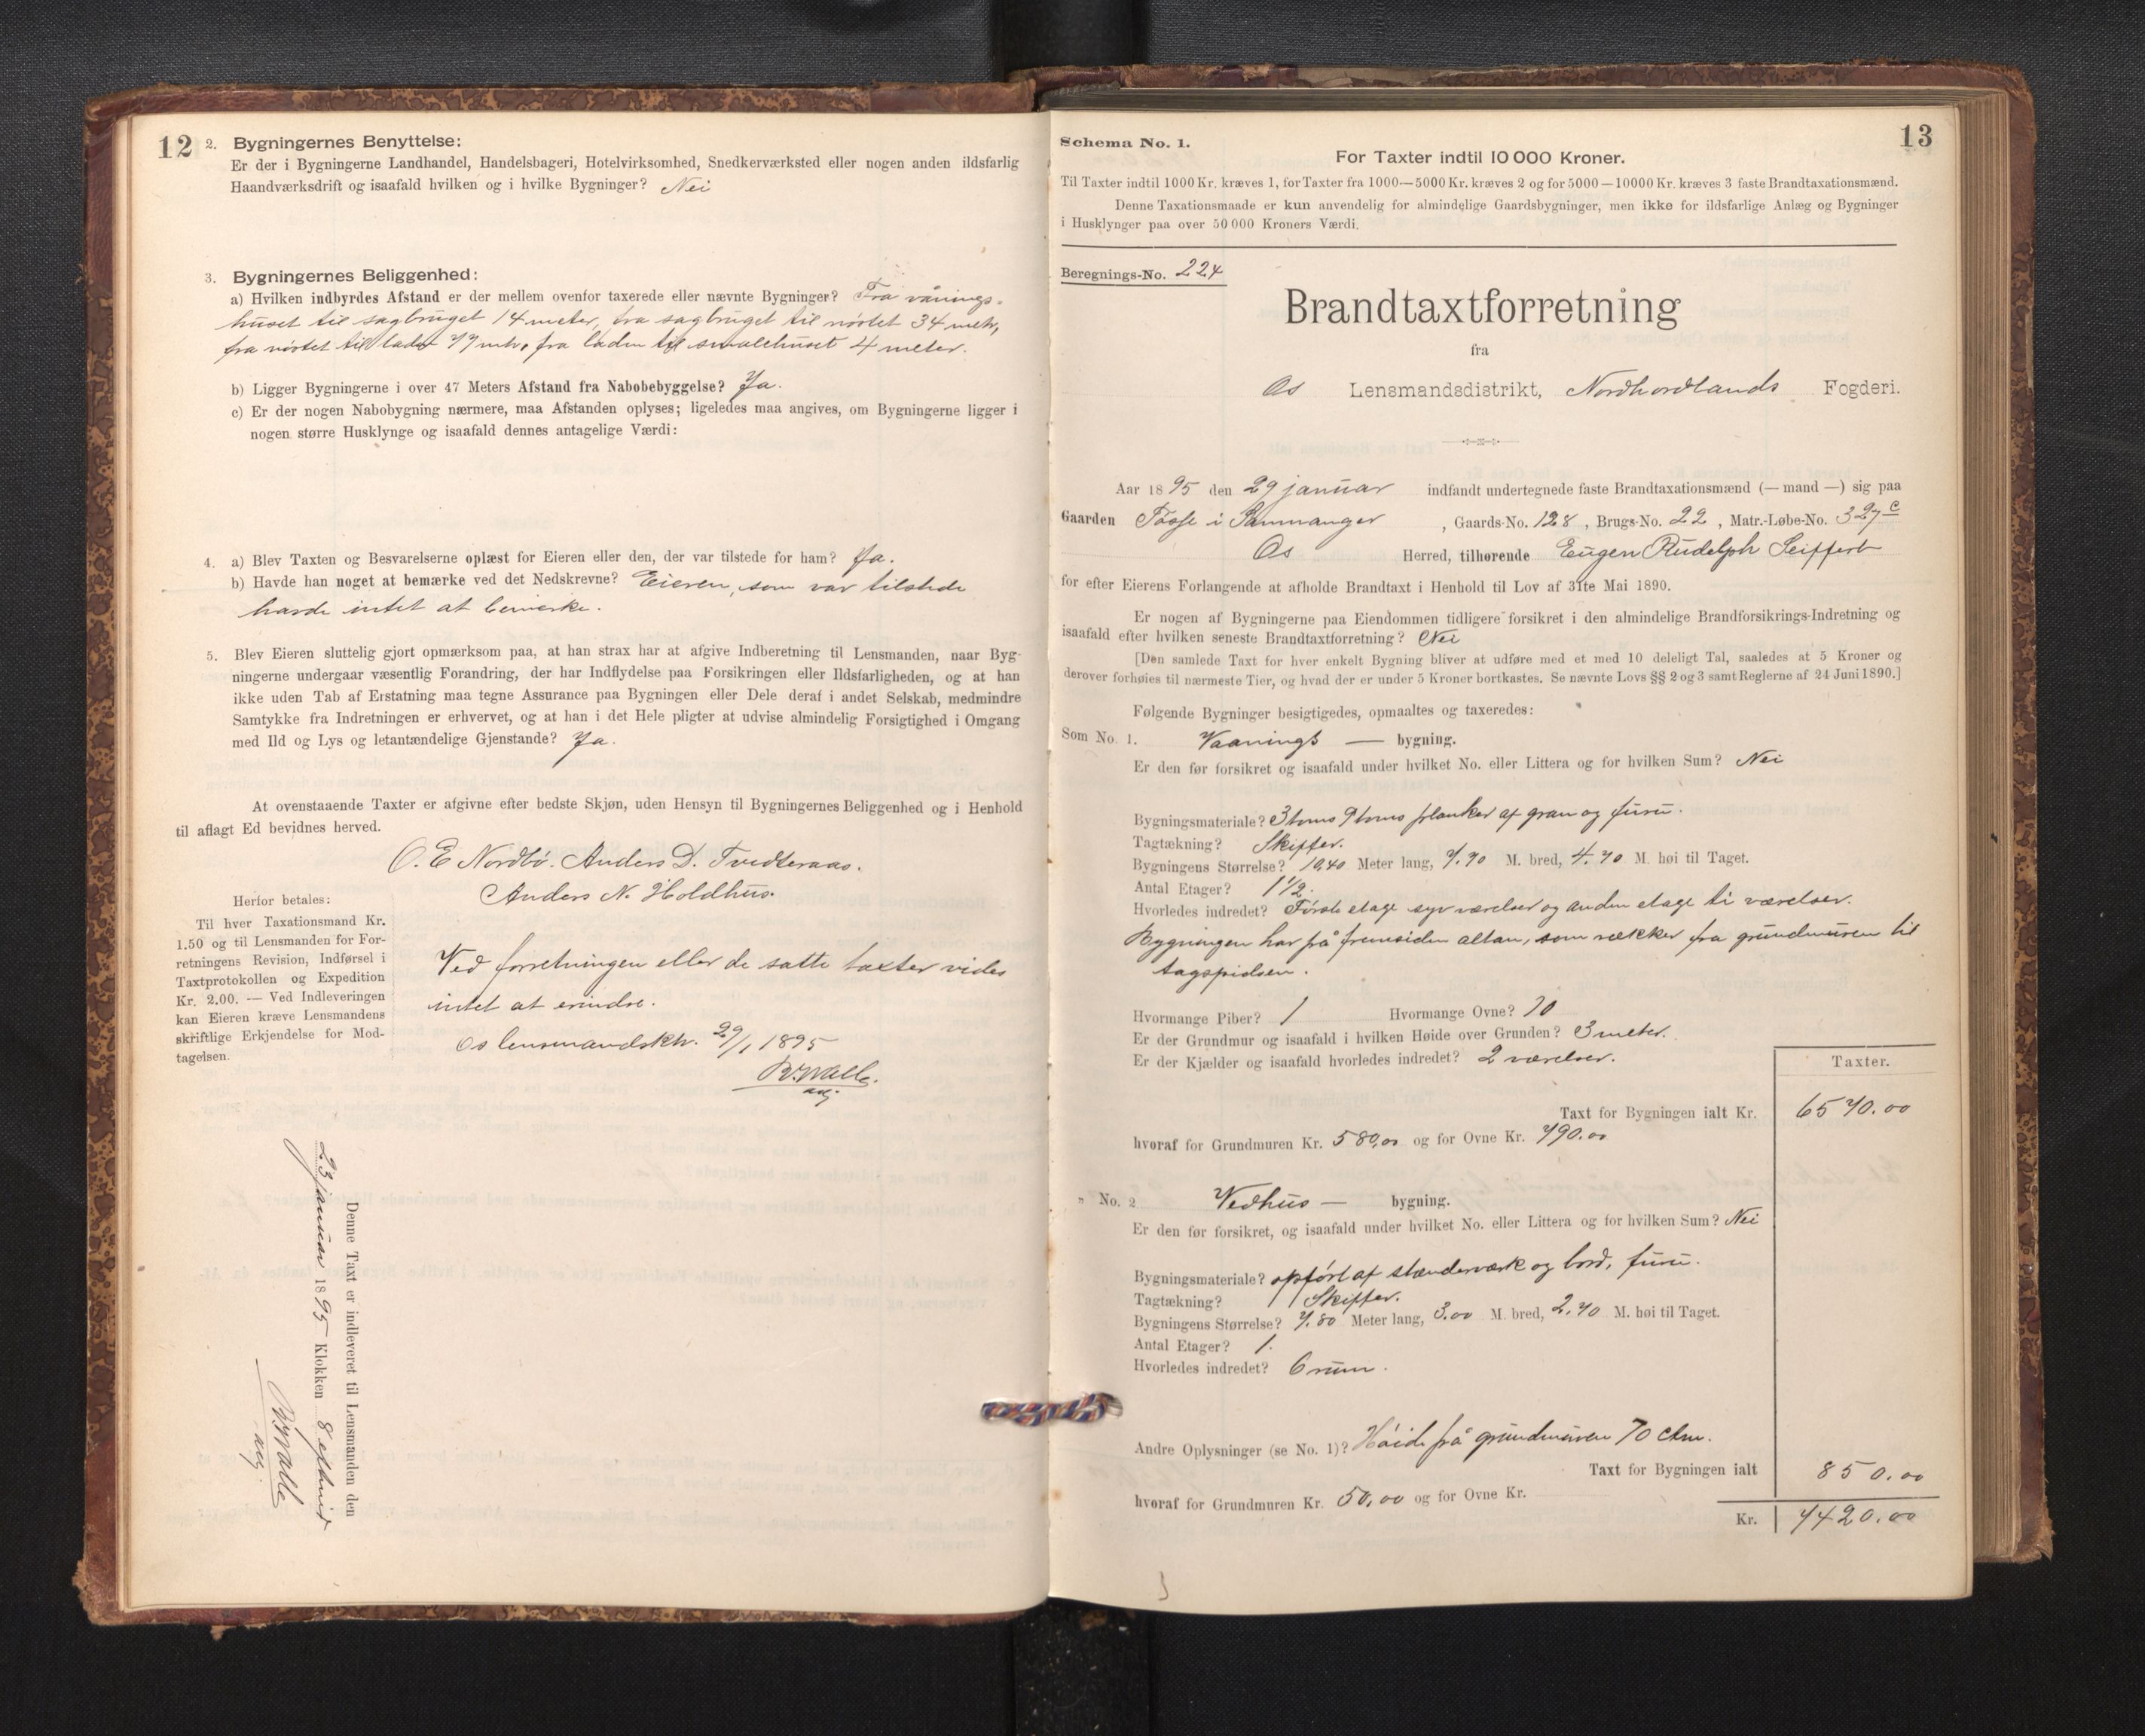 12
2. Bygningernes Benyttelse:
Er der i Bygningerne Landhandel, Handelsbageri, Hotelvirksomhed, Snedkerværksted eller nogen anden ildsfarlig
Haandværksdrift og isaafald hvilken og i hvilke Bygninger? Nei
3. Bygningernes Beliggenhed:
a) Hvilken indbyrdes Afstand er der mellem ovenfor taxerede eller nævnte Bygninger? Fra vånings-
huset til sagbruget 14 meter, fra sagbruget til nøstet 34 metr,
fra nøstet til laden 77 mtr, fra laden til smalehuset 4 meter.
b) Ligger Bygningerne i over 47 Meters Afstand fra Nabobebyggelse? Ja.
c) Er der nogen Nabobygning nærmere, maa Afstanden oplyses; ligeledes maa angives, om Bygningerne ligger i
nogen større Husklynge og isaafald dennes antagelige Værdi:
4. a) Blev Taxten og Besvarelserne oplæst for Eieren eller den, der var tilstede for ham? Ja.
b) Havde han noget at bemærke ved det Nedskrevne? Eieren, som var tilstede
havde intet at bemerke.
5. Blev Eieren sluttelig gjort opmærksom paa, at han strax har at afgive Indberetning til Lensmanden, naar Byg-
ningerne undergaar væsentlig Forandring, der har Indflydelse paa Forsikringen eller Ildsfarligheden, og at han
ikke uden Tab af Erstatning maa tegne Assurance paa Bygningen eller Dele deraf i andet Selskab, medmindre
Samtykke fra Indretningen er erhvervet, og at han i det Hele pligter at udvise almindelig Forsigtighed i Omgang
med Ild og Lys og letantændelige Gjenstande? Ja.
At ovenstaaende Taxter er afgivne efter bedste Skjøn, uden Hensyn til Bygningernes Beliggenhed og i Henhold
til aflagt Ed bevidnes herved.
O. E. Nordbø. Anders D. Tvedteraas.
Anders N. Holdhus.
Herfor betales:
Til hver Taxationsmand Kr.
1.50 og til Lensmanden for For-
retningens Revision, Indførsel i
Taxtprotokollen og Expedition
Kr. 2.00. — Ved Indleveringen
kan Eieren kræve Lensmandens
skriftlige Erkjendelse for Mod-
tagelsen.
Ved forretningen eller de satte taxter vides
intet at erindre.
Os lensmandsktr. 29/1 1895
Denne Taxt er indleveret til Lensmanden den
23 januar 1895 Klokken 8 eftmid
13
Schema No. 1.
For Taxter indtil 10000 Kroner.
Til Taxter indtil 1000 Kr. kræves 1, for Taxter fra 1000—5000 Kr. kræves 2 og for 5000—10000 Kr. kræves 3 faste Brandtaxationsmænd.
Denne Taxationsmaade er kun anvendelig for almindelige Gaardsbygninger, men ikke for ildsfarlige Anlæg og Bygninger
i Husklynger paa over 50000 Kroners Værdi.
Beregnings-No. 224
Brandtaxtforretning
fra
Os Lensmandsdistrikt, Nordhordlands Fogderi.
Aar 1895 den 29 januar indfandt undertegnede faste Brandtaxationsmænd (— mand —) sig paa
Gaarden Tøsse i Sammanger, Gaards-No. 128, Brugs-No. 22, Matr.-Løbe-No. 327c
Os Herred, tilhørende Eugen Rudolph Seiffert
for efter Eierens Forlangende at afholde Brandtaxt i Henhold til Lov af 31te Mai 1890.
Er nogen af Bygningerne paa Eiendommen tidligere forsikret i den almindelige Brandforsikrings-Indretning og
isaafald efter hvilken seneste Brandtaxtforretning? Nei
[Den samlede Taxt for hver enkelt Bygning bliver at udføre med et med 10 deleligt Tal, saaledes at 5 Kroner og
derover forhøies til nærmeste Tier, og hvad der er under 5 Kroner bortkastes. Se nævnte Lovs §§ 2 og 3 samt Reglerne af 24 Juni 1890.]
Følgende Bygninger besigtigedes, opmaaltes og taxeredes:
Som No. 1. Vaanings — bygning.
Er den før forsikret og isaafald under hvilket No. eller Littera og for hvilken Sum? Nei
Bygningsmateriale? 3 toms 9 toms planker af gran og furu.
Tagtækning? Skiffer.
Bygningens Størrelse? 10,40 Meter lang, 7.70 M. bred, 4.70 M. høi til Taget.
Antal Etager? 1 1/2.
Hvorledes indredet? Første etage syv værelser og anden etage ti værelser.
Bygningen har på fremsiden altan, som rækker fra grundmuren til
tagspidsen.
Hvormange Piber? 1 Hvormange Ovne? 10
Er der Grundmur og isaafald i hvilken Høide over Grunden? 3 meter.
Er der Kjælder og isaafald hvorledes indredet? 2 værelser.
Taxter.
Taxt for Bygningen ialt Kr. 6570.00
hvoraf for Grundmuren Kr. 580,00 og for Ovne Kr. 790.00
" No. 2 Vedhus — bygning.
Er den før forsikret, og isaafald under hvilket No. eller Littera og for hvilken Sum? Nei
Bygningsmateriale? opført af stænderværk og bord, furu.
Tagtækning? Skiffer.
Bygningens Størrelse? 7.80 Meter lang, 3.00 M. bred, 2.70 M. høi til Taget.
Antal Etager? 1.
Hvorledes indredet? 6 rum.
Andre Oplysninger (se No. 1)? Høide på grundmuren 70 ctm.
Taxt for Bygningen ialt 850.00
hvoraf for Grundmuren Kr. 50,00 og for Ovne Kr.
Kr. 7420.00